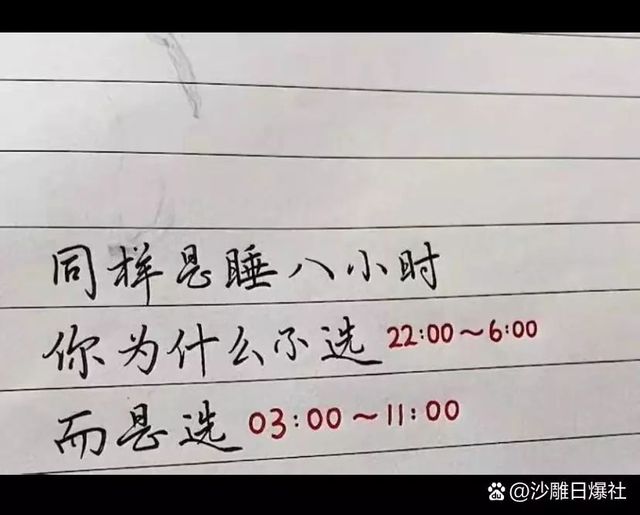 同样是睡八小时
你为什么不选 22:00～6:00
而是选 03:00～11:00
@沙雕日爆社